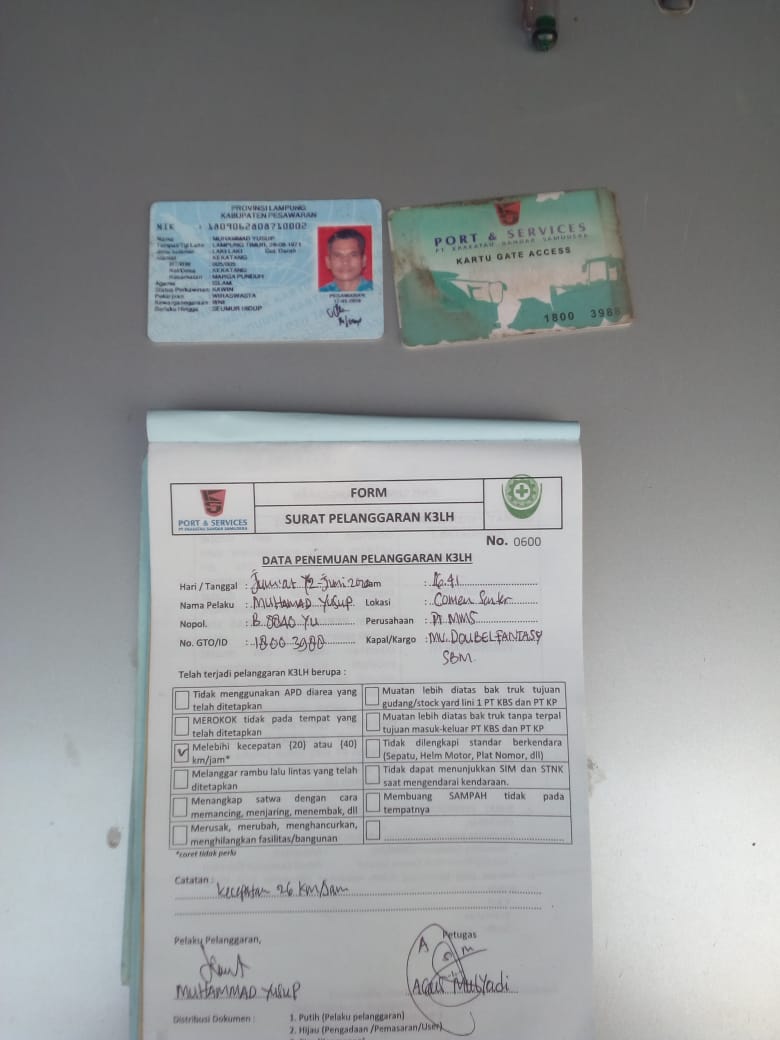 PROVINSI LAMPUNG
KABUPATEN PESAWARAN
NIK : 1809062808710002
Nama : MUHAMMAD YUSUP
Tempat/Tgl Lahir : LAMPUNG TIMUR, 28-08-1971
Jenis kelamin : LAKI-LAKI Gol. Darah :
Alamat : KEKATANG
RT/RW : 005/005
Kel/Desa : KEKATANG
Kecamatan : MARGA PUNDUH
Agama : ISLAM
Status Perkawinan : KAWIN
Pekerjaan : WIRASWASTA
Kewarganegaraan : WNI
Berlaku Hingga : SEUMUR HIDUP
PESAWARAN
PORT & SERVICES
PT KRAKATAU BANDAR SAMUDERA
KARTU GATE ACCESS
1800 3988
PORT & SERVICES
PT KRAKATAU BANDAR SAMUDERA
FORM
SURAT PELANGGARAN K3LH
No. 0600
DATA PENEMUAN PELANGGARAN K3LH
Hari / Tanggal : Jum'at 12-Juni-2020 Jam : 16.41
Nama Pelaku : MUHAMAD YUSUP Lokasi :
Nopol. : B. 9840 YU Perusahaan : PT MMS
No. GTO/ID : 1800 3988 Kapal/Kargo : MV. DOUBEL FANTASY
SBM
Telah terjadi pelanggaran K3LH berupa :
Tidak menggunakan APD diarea yang telah ditetapkan
Muatan lebih diatas bak truk tujuan gudang/stock yard lini 1 PT KBS dan PT KP
MEROKOK tidak pada tempat yang telah ditetapkan
Muatan lebih diatas bak truk tanpa terpal tujuan masuk-keluar PT KBS dan PT KP
Melebihi kecepatan (20) atau (40) km/jam*
Tidak dilengkapi standar berkendara (Sepatu, Helm Motor, Plat Nomor, dll)
Melanggar rambu lalu lintas yang telah ditetapkan
Tidak dapat menunjukkan SIM dan STNK saat mengendarai kendaraan.
Menangkap satwa dengan cara memancing, menjaring, menembak, dll
Membuang SAMPAH tidak pada tempatnya
Merusak, merubah, menghancurkan, menghilangkan fasilitas/bangunan
*coret tidak perlu
Catatan : kecepatan 26 KM/Jam
Pelaku Pelanggaran, Petugas
MUHAMMAD YUSUP Agus Mulyadi
Distribusi Dokumen : 1. Putih (Pelaku pelanggaran)
2. Hijau (Pengadaan /Pemasaran/User)